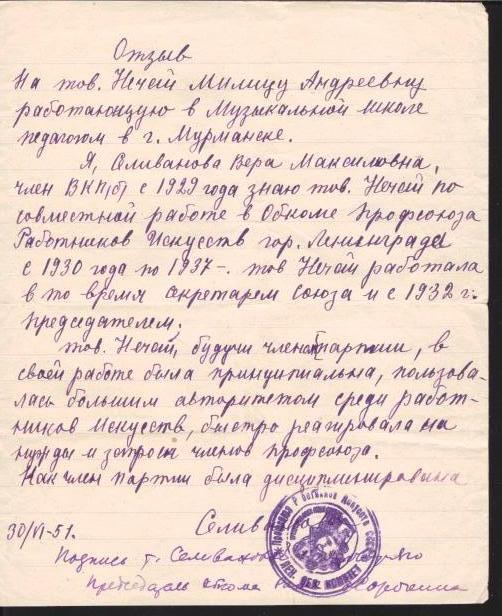 Отзыв
На тов. Нечай Милицу Андреевну
работающую в Музыкальной школе
педагогом в г. Мурманске.
Я, Селиванова Вера Максимовна,
член ВКП(б) с 1929 года знаю тов. Нечай по
совместной работе в Обкоме Профсоюза
Работников Искусств гор. Ленинграда
с 1930 года по 1937-. тов Нечай работала
в то время секретарем Союза и с 1932 г.
председателем.
тов. Нечай, будучи членом партии, в
своей работе была принципиальна, пользова-
лась большим авторитетом среди работ-
ников Искусств, быстро реагировала на
нужды и запросы членов профсоюза.
Как член партии была дисциплинирована
30/VI-51.
Подпись т.